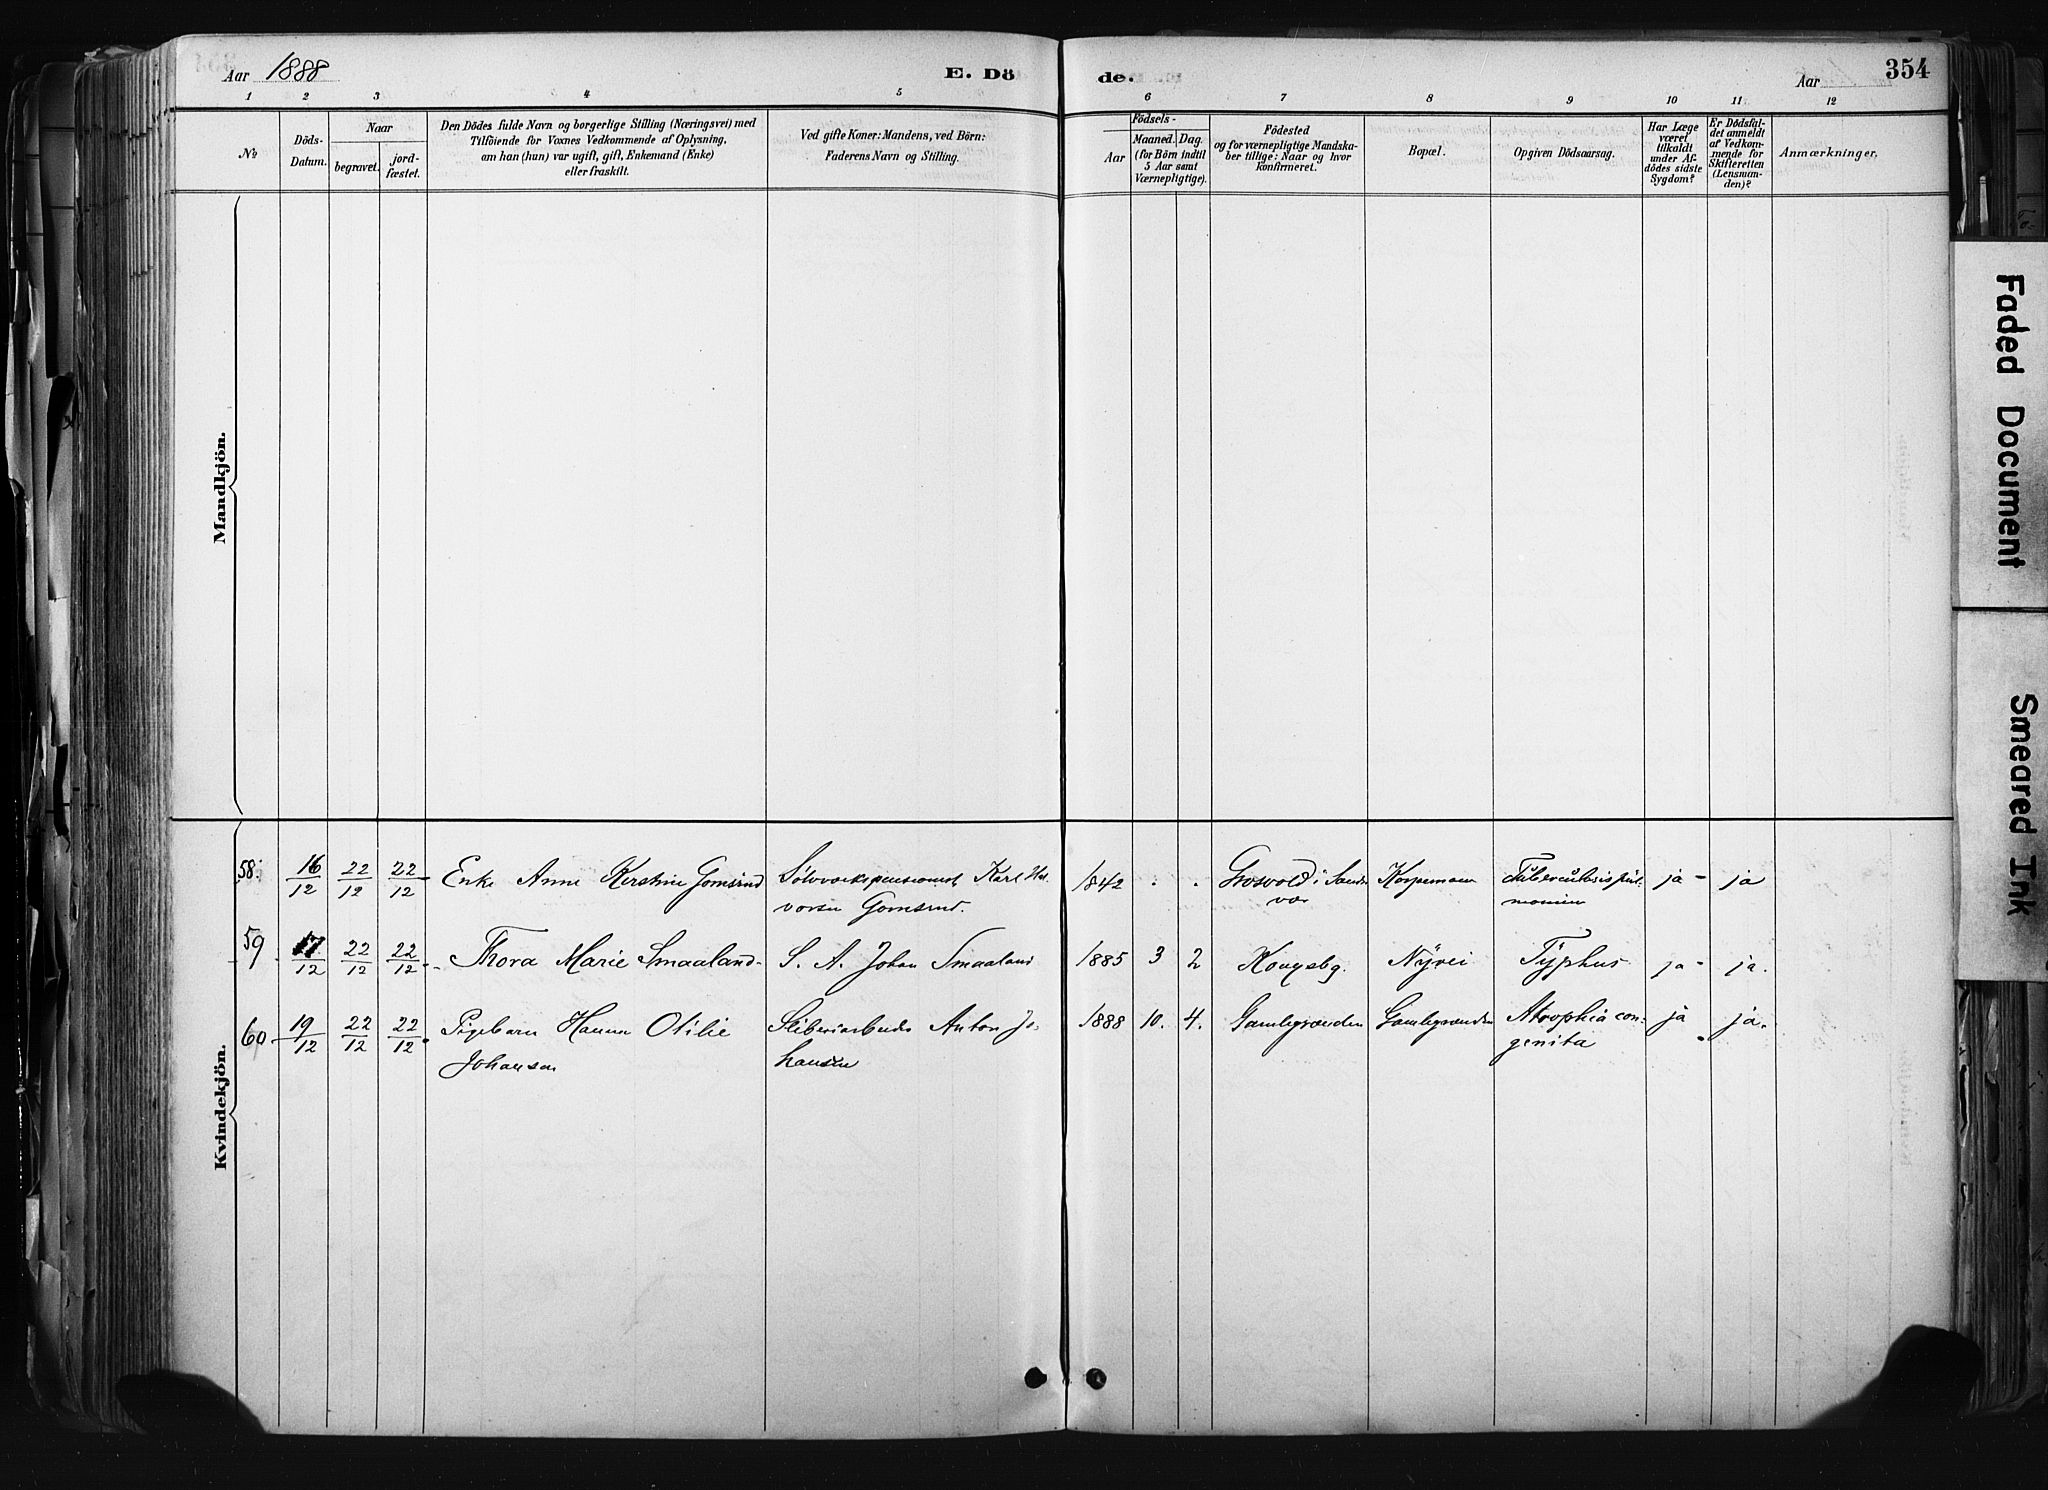 Aar 1888
E. Dö
de.
Aar
354
1 2 3 4 5 6 7 8 9 10 11 12
No
Döds-
Datum.
Naar
begravet.
jord-
fæstet.
Den Dödes fulde Navn og borgerlige Stilling (Næringsvei) med
Tilföiende for Voxnes Vedkommende af Oplysning,
om han (hun) var ugift, gift, Enkemand (Enke)
eller fraskilt.
Ved gifte Koner: Mandens, ved Börn:
Faderens Navn og Stilling.
Födsels-
Aar
Maaned.
Dag.
(for Börn indtil
5 Aar samt
Værnepligtige).
Födested
og for værnepligtige Mandska-
ber tillige: Naar og hvor
konfirmeret.
Bopæl.
Opgiven Dödsaarsag.
Har Læge
været
tilkaldt
under Af-
dödes sidste
Sygdom?
Er Dödsfal-
det anmeldt
af Vedkom-
mende for
Skifteretten
(Lensman-
den)?
Anmærkninger.
Mandkjön.
Kvindekjön.
58. 16/12 22/12 22/12 Enke Anne Kirstine Gomsrud Sölvværkspensionist Karl Hal- 1842 . . i Sands- Tuberculosis pul- ja - ja
vorsen Gomsrud. vær monum
59 17/12 22/12 22/12 Thora Marie Smaaland S. A. Johan Smaaland 1885 3 2 Kongsbg. Nyvei Typhus ja - ja.
60 19/12 22/12 22/12 Pigebarn Hanna Otilie Sliberiarbeider Anton Jo- 1888 10. 4. Gamlegrenden Gamlegrenden Atrophia con- ja ja.
Johansen hansen genita
Faded Document
Smeared Ink